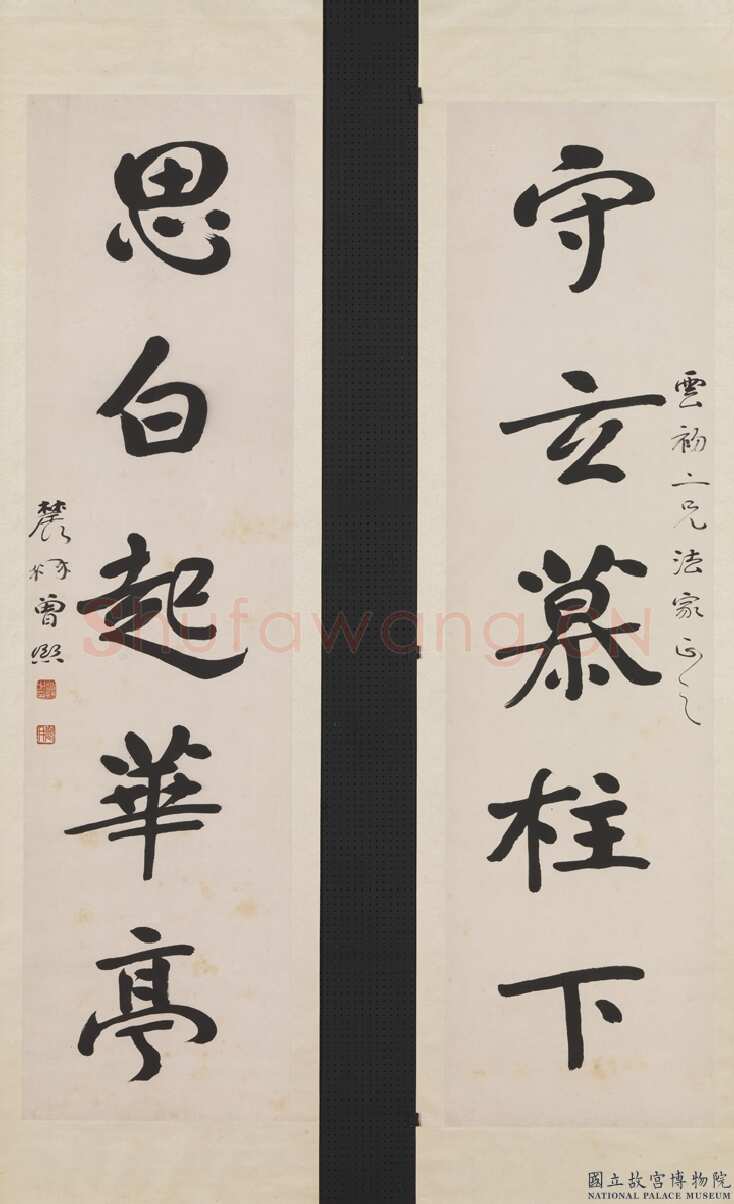 雲初二兄法家正之
守玄慕柱下
思白起華亭
農髯曾熙
Shufawang.CN
國立故宮博物院
NATIONAL PALACE MUSEUM